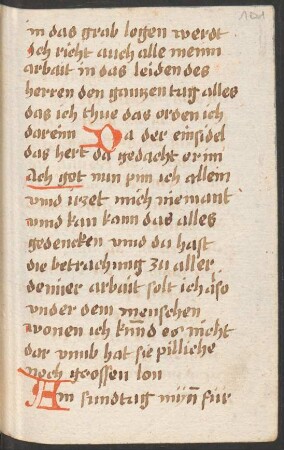 101
in das grab legen werdt
Ich richt auch alle meinn
arbait in das leiden des
herren den gantzen tag alles
das ich thue das orden ich
darein Da der einsidel
das hert da gedacht er im
Ach got nun pin ich allein
vnnd irret mich niemant
vnnd kan kann das alles
gedencken vnnd du hast
die betrachung zu aller
deiner arbait solt ich also
vnder dem menschen
wonen ich kund es nicht
dar vmb hat sie pilliche
noch grossen lon
Am sundtag nym̄ für